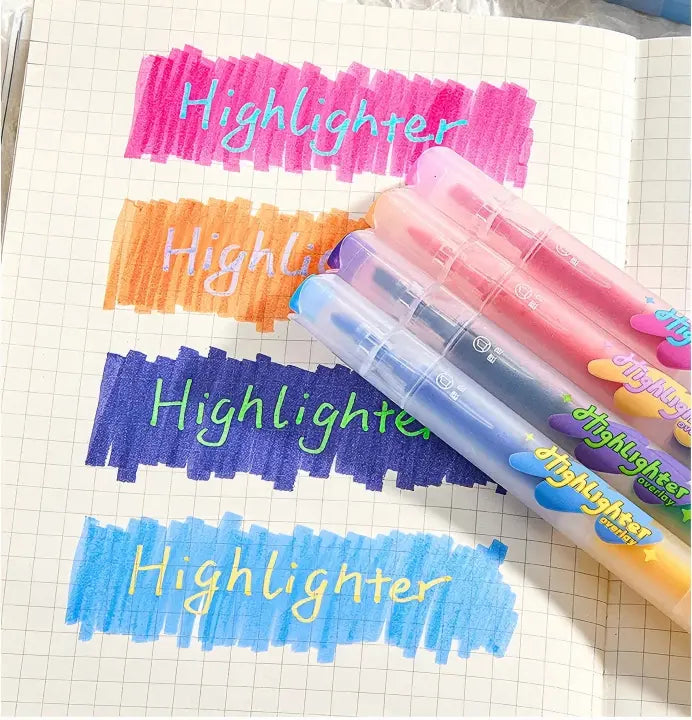 Highlighter
Highli
Highlighte
Highlighter
Highlighter
Highlighter
Highlighter
overlay
Highlighter
overlay